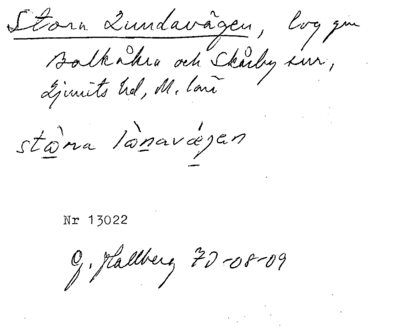 Stora Lundavägen, låg gm
Balkåkra och Skårby snr,
Ljunits hd, M. län
stòra lònavä̀gan
Nr 13022
G. Hallberg 70-08-09